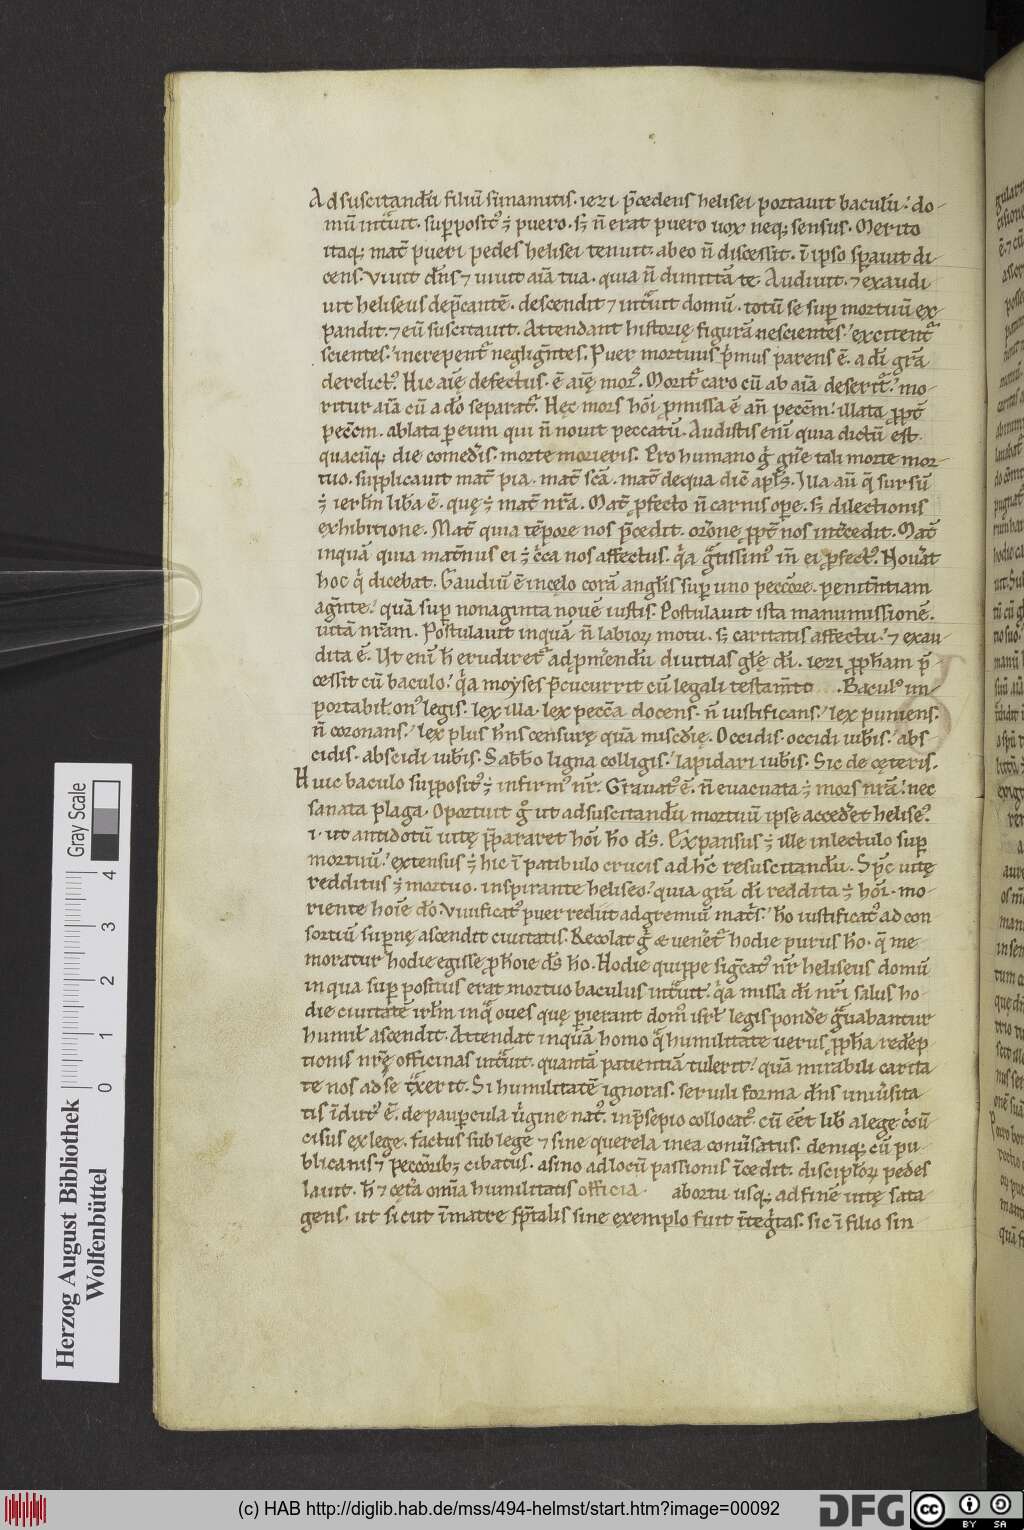 Adsuscitandū filiū sunamitis. iezi p̄cedens helisei portauit baculū. do-
mū int͛uit. supposit᷒ ÷ puero. sꝫ n̄ erat puero uox neqꝫ sensus. Merito
itaqꝫ mat̄ pueri pedes helisei tenuit. abeo n̄ discessit. ī ipso sperauit di
cens. viuit dn̄s ⁊ uiuit aīa tua. quia n̄ dimittā te. Audiuit. ⁊ exaudi
uit heliseus dep̄cantē. descendit ⁊ int͛uit domū. totū se suꝑ mortuū ex
pandit. ⁊ eū suscitauit. Attendant historię figurā nescientes. excitent᷑
scientes. increpent᷑ neglig̅ntes. Puer mortuus p͛mus parens ē. a di͛ gr̄a
derelict᷒. Hic aīę defectus. ē aīę mors. Morit᷑ caro cū ab aīa deserit᷑. mo-
ritur aīa cū a do͛ separat᷑. Hęc mors hōi ꝓmissa ē an̄ pecc̄m. illata ꝓpt̄
pecc̄m. ablata ꝑ eum qui n̄ nouit peccatū. Audistis enī quia dictū est.
quacūqꝫ die comed͛is. morte morieris. Pro humano g͛ gn̄e tali morte mor-
tuo. supplicauit mat̄ pia. mat̄ sc̄a. mat̄ dequa dic̄ apl͛s. Illa au̅ q̄ sursū
÷ ierlm̄ lib͛a ē. quę ÷ mat̄ nr̄a. Mat̄ ꝓfecto n̄ carnis ope. sꝫ dilectionis
exhibitione. Mat̄ quia tēpore nos p̄cedit. orōne ꝓpt̄ nos int͛cedit. Mat̄
inquā quia mat̄nus ei ÷ c͛ca nos affectus. q͛a g͛tissim᷒ in̄ ei ꝓfect᷒. Nou͛at
hoc q͛ dicebat. Gaudiū ē incęlo corā angl͛is suꝑ uno peccōre. penitn̄tiam
ag̅nte. quā suꝑ nonaginta nouē iustis. Postulauit ista manumissionē.
uitā nr̄am. Postulauit inquā n̄ labioꝝ motu. sꝫ caritatis affectu. ⁊ exau
dita ē. Ut enī h̄ erudiret᷑ ad pm͛endū diuitias gl͛ę di͛. iezi ꝓph̄am p̄
cessit cū baculo. q͛a moyses p̄cucurrit cū legali testam̄to. Bacul᷒ im-
portabil͛ on᷒ legis. lex illa. lex pecc̄a docens. n̄ iustificans. lex puniens.
n̄ coronans. lex plus hn̄s censurę quā miscd͛ię. Occidis. occidi iub͛is. abs
cidis. abscidi iub͛is. Sabb͛o ligna colligis. lapidari iub͛is. Sic de cęteris.
Huic baculo supposit᷒ ÷ infirm᷒ nr̄. Grauat᷒ ē. n̄ euacuata ÷ mors nr̄a. nec
sanata plaga. Oportuit g͛ ut adsuscitandū mortuū ipse acced͛et helise᷒.
i. ut antidotū uitę p̄pararet hōi h͛o ds̄. Expansus ÷ ille inlectulo suꝑ
mortuū. extensus ÷ hic ī patibulo crucis ad h̄c resuscitandū. Sp̄c uitę
redditus ÷ mortuo. inspirante heliseo. quia gr̄a di͛ reddita ÷ hōi. mo-
riente hoīe do͛. Viuificat᷒ puer rediit adgremiū mat͛s. h͛o iustificat᷒ ad con
sortiū supnę ascendit ciuitatis. Recolat g͛ & uenet᷑ hodie purus h͛o. q̄ me
moratur hodie egisse ꝓ hoīe ds̄ h͛o. Hodie quippe sig̅cat᷑ nr̄ heliseus domū
in qua suꝑ positus erat mortuo baculus int͛uit. q͛a missa di͛ nr̄i salus ho
die ciuitatē irlm̄ inq͛ oues quę pierant dom᷒ isrl̄ legis pond͛e g͛uabantur
humil͛ ascendit. Attendat inquā homo q͛ humilitate uerus ꝓph̄a redēp
tionis nr̄ę officinas int͛uit. quantā patientiā tulerit. quā mirabili carita
te nos ad se t͛xerit. Si humilitatē ignoras. seruili forma dn̄s uniu͛sita
tis īdut᷒ ē. de paupcula u͛gine nat᷒. inp͛sepio collocat᷒. cū eēt lib͛ a lege c͛cū
cisus ęx lege. factus sub lege ⁊ sine querela inea conu͛satus. deniqꝫ cū pu-
blicanis ⁊ peccōribꝫ cibatus. asino adlocū passionis īcedit. discipl͛oꝝ pedes
lauit. h̄ ⁊ cęt͛a om̄ia humilitatis officia. abortu usqꝫ ad finē uitę sata
gens. ut sicut īmatre sp̄italis sine exemplo fuit īteg͛tas. sic ī filio sin
Gray Scale
0 1 2 3 4
Herzog August Bibliothek
Wolfenbüttel
(c) HAB http://diglib.hab.de/mss/494-helmst/start.htm?image=00092
DFG
cc
BY SA